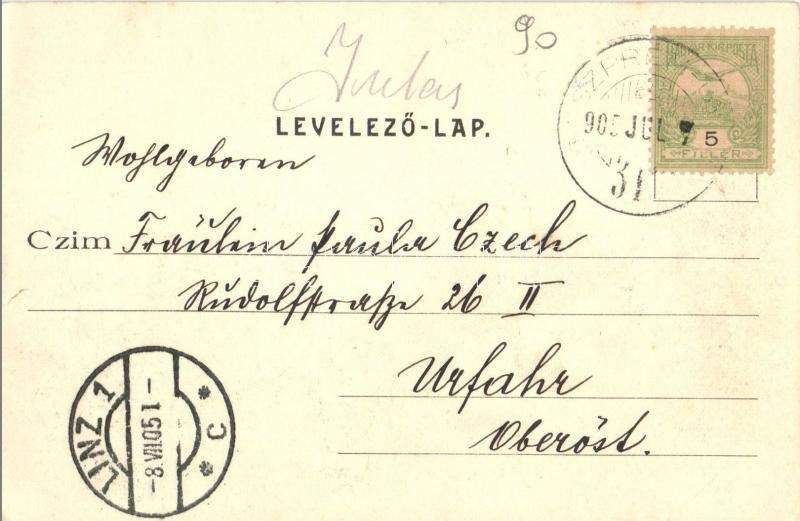 90
Jutas
MAGYAR KIR. POSTA
905 JUL 7
5
FILLÉR
31
LEVELEZŐ-LAP.
Wohlgeboren
Czim Fräulein Paula Czech
Rudolfstraße 26 II
Urfahr
Oberöst.
LINZ 1
-8.VII.05 1-
* C *